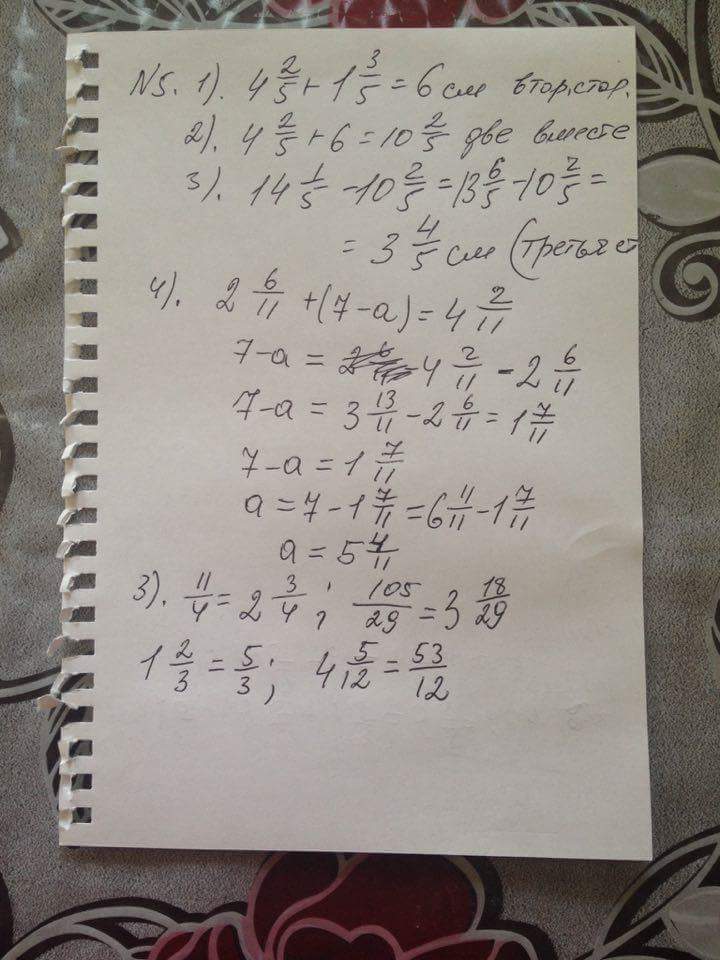 N5. 1). 4 2/5 + 1 3/5 = 6 см втор. стор.
2). 4 2/5 + 6 = 10 2/5 две вместе
3). 14 1/5 - 10 2/5 = 13 6/5 - 10 2/5 =
= 3 4/5 см (третья ст
4). 2 6/11 + (7 - а) = 4 2/11
7 - а = 4 2/11 - 2 6/11
7 - а = 3 13/11 - 2 6/11 = 1 7/11
7 - а = 1 7/11
а = 7 - 1 7/11 = 6 11/11 - 1 7/11
а = 5 4/11
3). 11/4 = 2 3/4 ; 105/29 = 3 18/29
1 2/3 = 5/3 ; 4 5/12 = 53/12